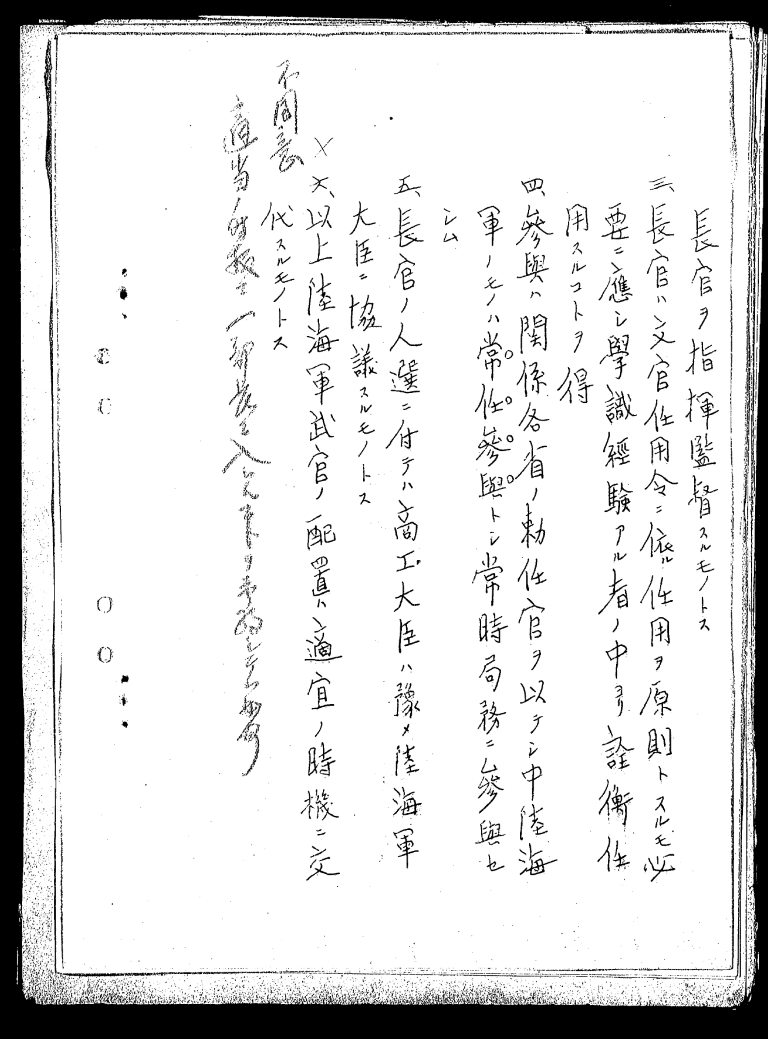 長官ヲ指揮監督スルモノトス
三、長官ハ文官任用令ニ依ル任用ヲ原則トスルモ必
要ニ應シ學識經驗アル者ノ中ヨリ詮衡任
用スルコトヲ得
四、參與ハ関係各省ノ勅任官ヲ以テシ中陸海
軍ノモノハ常任參與トシ常時局務ニ參與セ
シム
五、長官ノ人選ニ付テハ商工大臣ハ豫メ陸海軍
大臣ニ協議スルモノトス
×
六、以上陸海軍武官ノ配置ハ適宜ノ時機ニ交
代スルモノトス
不同意
適当ノ時機ニ一部長ニ入